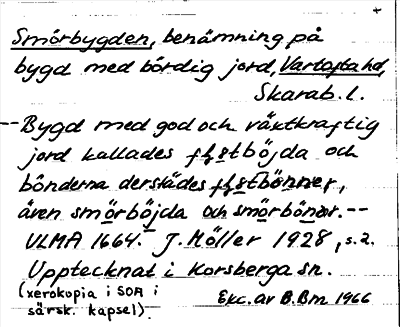 Smörbygden, benämning på
bygd med bördig jord, Vartofta hd,
Skarab. l.
-- Bygd med god och växtkraftig
jord kallades flstböjda och
bönderna derstädes flstbönner,
även smörböjda och smörbönar. --
ULMA 1664. J. Möller 1928, s. 2.
Upptecknat i Korsberga sn.
(xerokopia i SOA i
särsk. kapsel) Exc. av B.Bm 1966